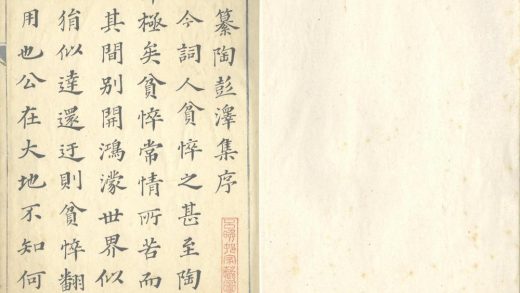 纂陶彭澤集序
今詞人貧悴之甚至陶
極矣貧悴常情所苦而
其間別開鴻濛世界似
狷似達還迂則貧悴翻
用也公在大地不知何